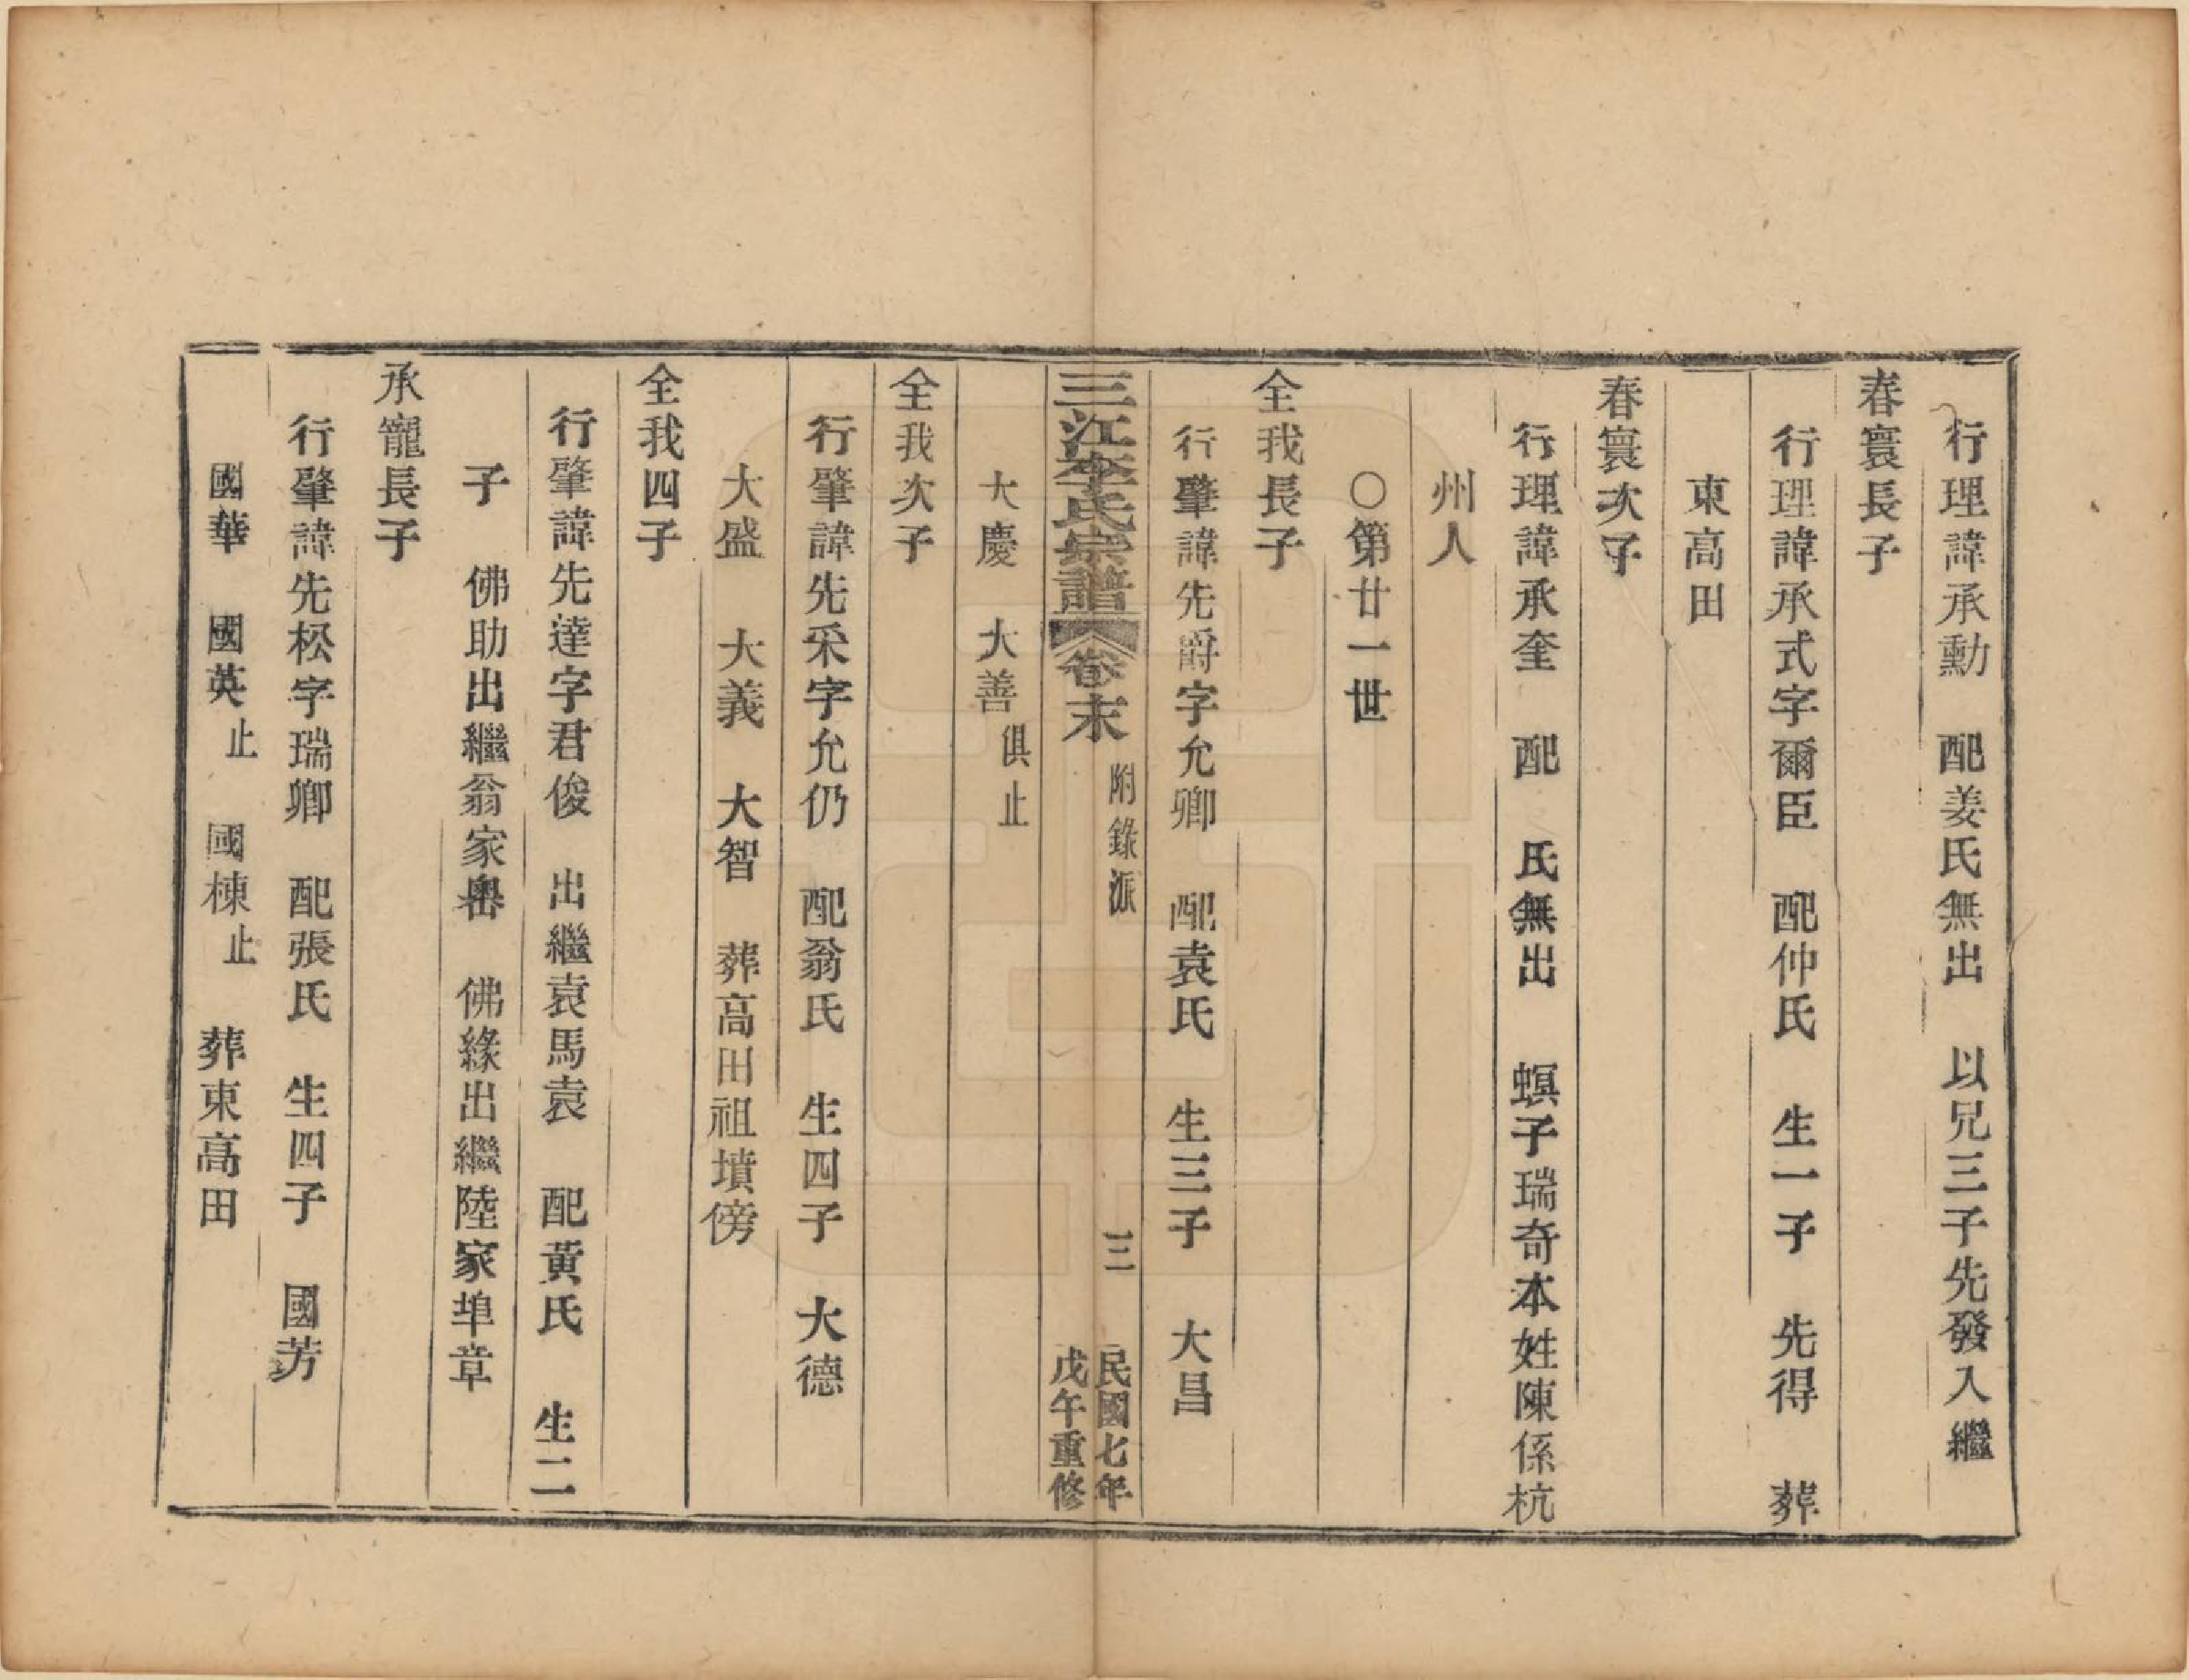 行理諱承勳　配姜氏無出　以兄三子先發入繼
春寰長子
行理諱承式字爾臣　配仲氏　生一子　先得　葬
東高田
春寰次子
行理諱承奎　配　氏無出　螟子瑞奇本姓陳係杭
州人
〇第廿一世
全我長子
行肇諱先爵字允卿　配袁氏　生三子　大昌
三江李氏宗譜　卷末　附錄派　三　民國七年戊午重修
大慶　大善俱止
全我次子
行肇諱先采字允仍　配翁氏　生四子　大德
大盛　大義　大智　葬高田祖墳傍
全我四子
行肇諱先達字君俊　出繼袁馬袁　配黃氏　生二
子　佛助出繼翁家嶴　佛緣出繼陸家埠章
承寵長子
行肇諱先松字瑞卿　配張氏　生四子　國芳
國華　國英止　國棟止　葬東高田